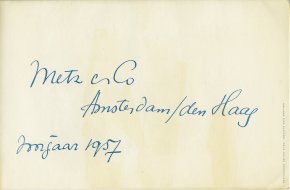 Metz & Co
Amsterdam/den Haag
voorjaar 1957